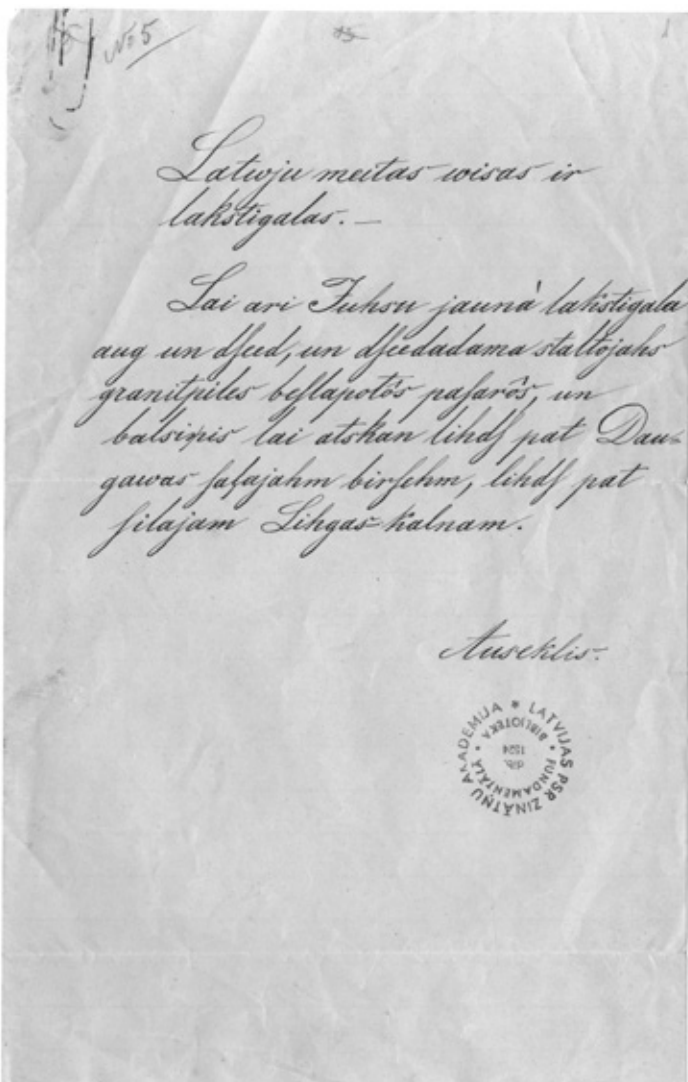 № 5
15
1
Latwju meitas wisas ir
lakstigalas. —
Lai ari Juhsu jaunà lakstigala
aug un dſeed, un dſeedadama staltojahs
granitpiles beſlapotôs paſarôs, un
balsinis lai atskan lihdſ pat Dau-
gawas ſaſajahm birſehm, lihdſ pat
ſilajam Lihgas-kalnam.
Auseklis.
LATVIJAS PSR ZINĀTŅU AKADEMIJA *
• FUNDAMENTĀLĀ •
BIBLIOTEKA
dib.
1524